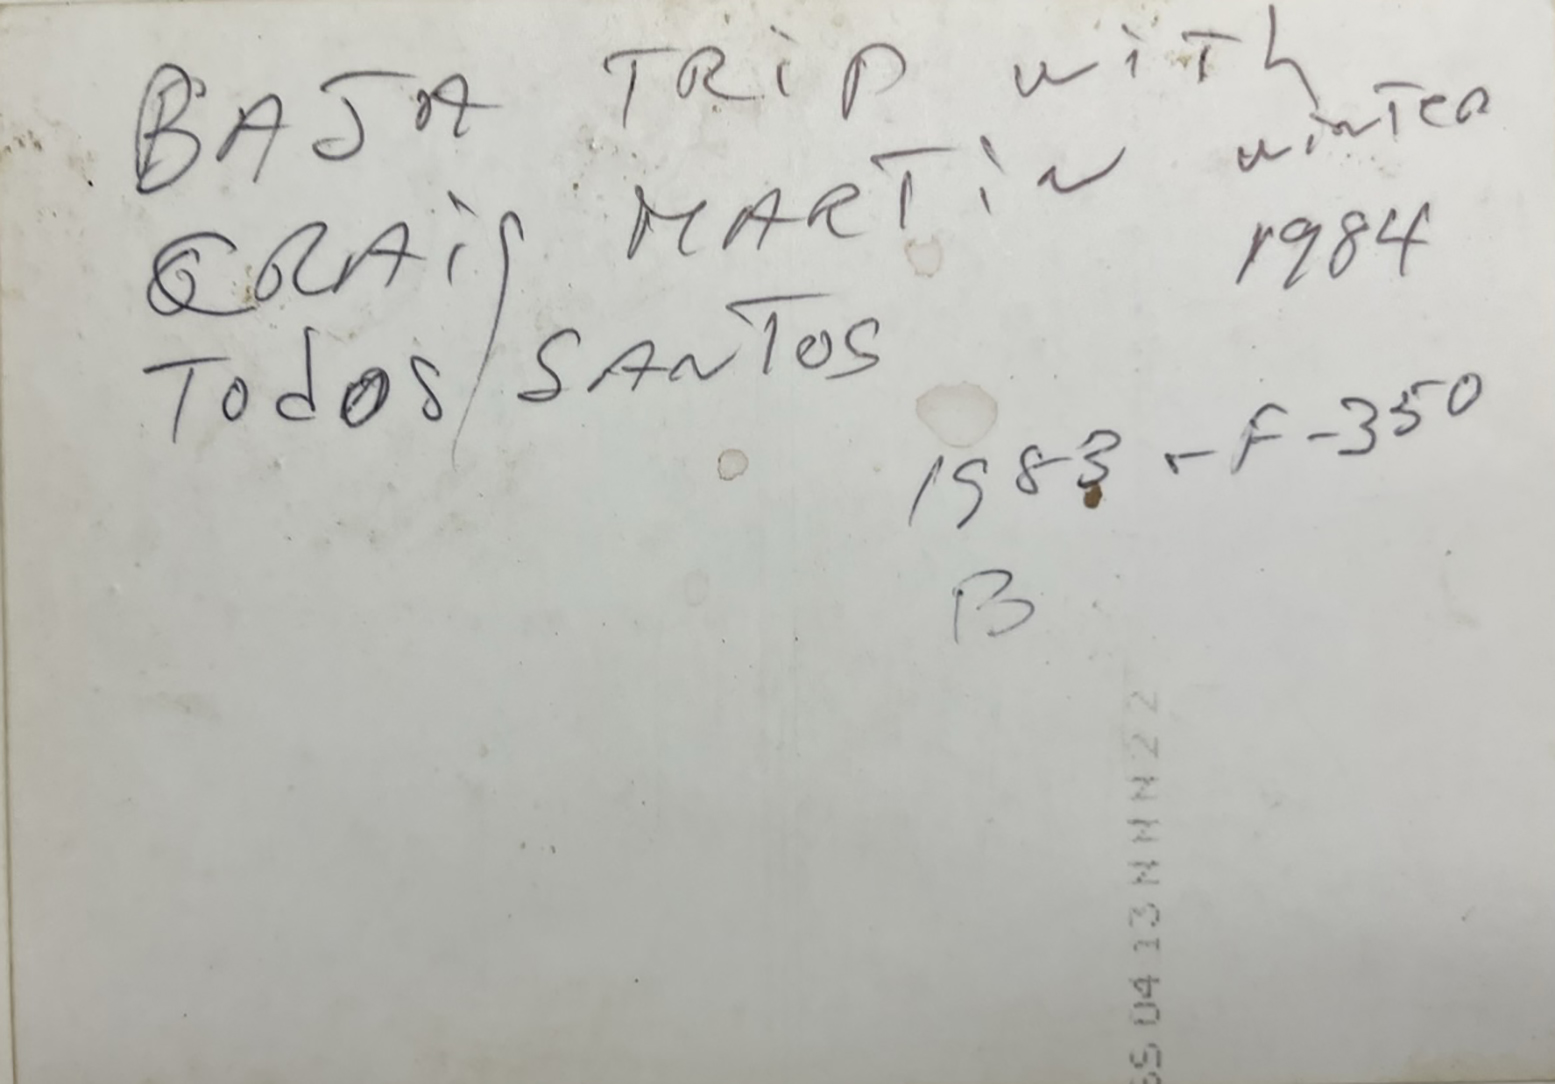 BAJA TRIP WITH
CRAIG MARTIN WINTER
1984
TODOS SANTOS
1983 - F-350
B
5S 04 13 N N N 2 2